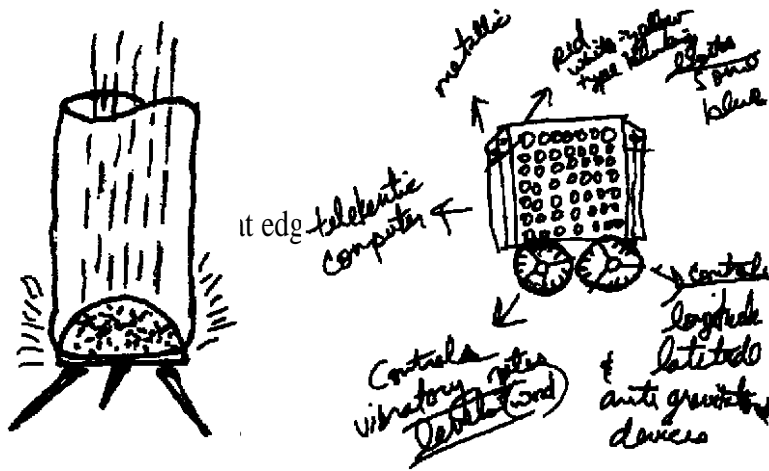 metallic
red
white yellow
type blinking
lights
some
blue
ut edg
computer
controls
longitude
latitude
& anti gravitational
devices
Controls
vibratory rates
levels (word)